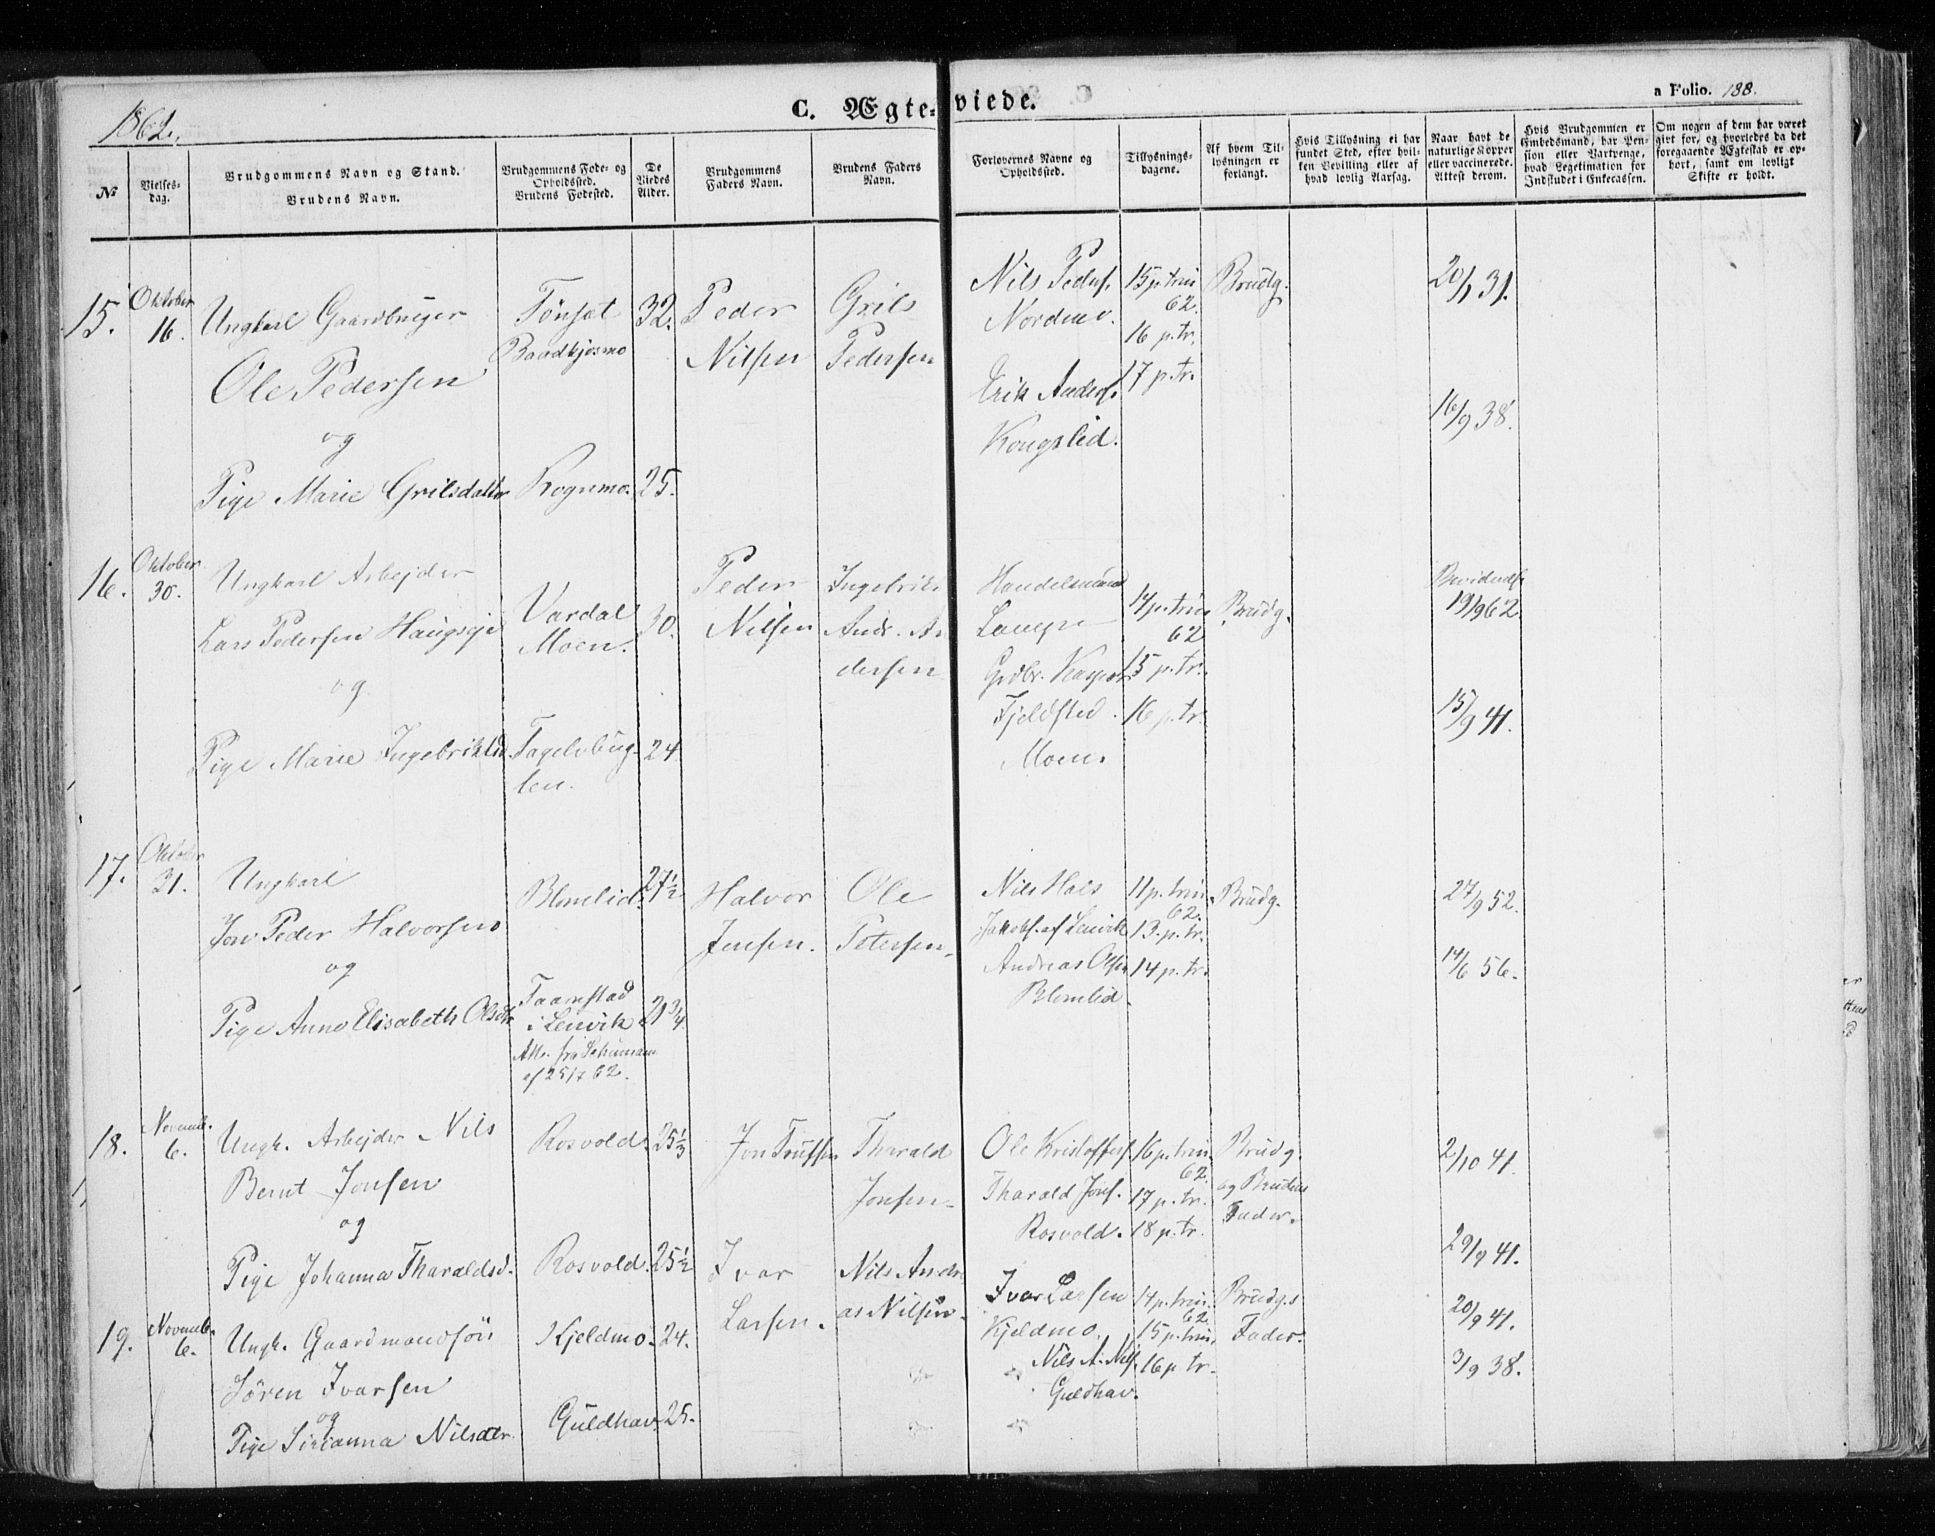 1862.
C. Ægte-viede.
a Folio. 188.
No
Vielses-dag.
Brudgommens Navn og Stand.
Brudens Navn.
Brudgommens Føde- og Opholdssted.
Brudens Fødested.
De Viedes Alder.
Brudgommens Faders Navn.
Brudens Faders Navn.
Forlovernes Navne og Opholdssted.
Tillysnings-dagene.
Af hvem Tillysningen er forlangt.
Hvis Tillysning ei har fundet Sted, efter hvilken Bevilling eller af hvad lovlig Aarsag.
Naar havt de naturlige Kopper eller vaccinerede. Attest derom.
Hvis Brudgommen er Embedsmand, har Pension eller Vartpenge, hvad Legetimation for Indskudet i Enkecassen.
Om nogen af dem har været givt før, og hvorledes da det foregaaende Ægteskab er ophørt, samt om lovligt Skifte er holdt.
15. Oktober 16.
Ungkarl Gaardbruger
Ole Pedersen
og
Pige Marie Grilsdatter
Tönset
Baadkjosmo
Rognmo.
32.
25.
Peder
Nilsen
Grils
Pedersen
Nils Peders.
Nordmo.
Erik Anders.
Kongslid.
15 p. trin
62.
16 p. tr.
17 p. tr.
Brudg.
20/1 31.
16/9 38.
16. Oktober 30.
Ungkarl Arbejder
Lars Pedersen Haugseje
og
Pige Marie Ingebriktsd.
Vardal
Moen.
Fagelvbug-
ten.
30.
24
Peder
Nilsen
Ingebrik.
Andr. An
dersen
Handelsmand
Gdbr. Kasper
Fjeldsted.
Moen.
14 p. trin.
62
15 p. tr.
16 p. tr.
Brudg.
19/9 62
15/9 41.
17. Oktober 31.
Ungkarl
Jon Peder Halvorsen
og
Pige Anne Elisabeth Olsdtr
Blomlid.
Taamstad
i Lenvik
af 25/7 62.
27 1/2
21 3/4
Halvor
Jensen.
Ole
Petersen.
Nils Hals
Jakobs. af Lenvik
Andreas Olsen
Blomlid.
11 p. trin.
62.
13. p. tr.
14 p. tr.
Brudg.
27/9 52.
14/6 56.
18. Novemb. 6.
Ungk. Arbejder Nils
Bernt Jonsen
og
Pige Johanna Tharaldsd.
Rosvold.
Rosvold.
25 1/3
25 1/2
Jon
Tharald
Jonsen
Ole Kristoffers.
Tharald Jons.
Rosvold.
16 p. trin.
62.
17 p. tr.
18 p. tr.
Brudg.
og Brudens
Fader.
2/10 41.
29/9 41.
19. Novemb. 6.
Ungk. Gaardmandssön
Sören Ivarsen
og
Pige Sirianna Nilsdtr.
Kjeldmo.
Guldhav.
24.
25.
Ivar
Larsen.
Nils Andre
as Nilsen.
Ivar Larsen
Kjeldmo.
Nils A. Nils.
Guldhav.
14 p. trin.
62.
15 p. trin.
16 p. tr.
Brudg.s
Fader.
20/9 41.
3/9 38.